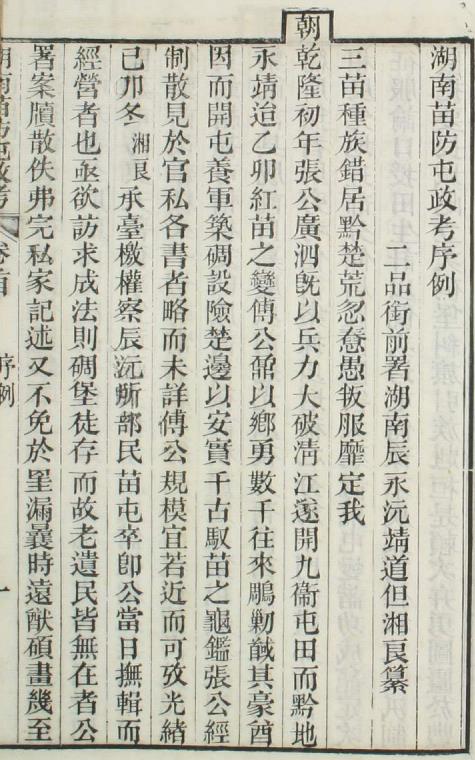 湖南苗防屯政考序例
二品銜前署湖南辰永沅靖道但湘良纂
三苗種族錯居黔楚荒忽惷愚扳服靡定我
朝乾隆初年張公廣泗旣以兵力大破淸江遂開九衞屯田而黔地
永靖迨乙卯紅苗之變傅公鼐以鄉勇數千往來鵰勦馘其豪酋
因而開屯養軍築碉設險楚邊以安實千古馭苗之龜鑑張公經
制散見於官私各書者略而未詳傅公規模宜若近而可攷光緒
己卯冬湘良承臺檄權察辰沅所部民苗屯卒卽公當日撫輯而
經營者也亟欲訪求成法則碉堡徒存而故老遺民皆無在者公
署案牘散佚弗完私家記述又不免於罣漏曩時遠猷碩畫幾至
湖南苗防屯政考 卷首 序例 一